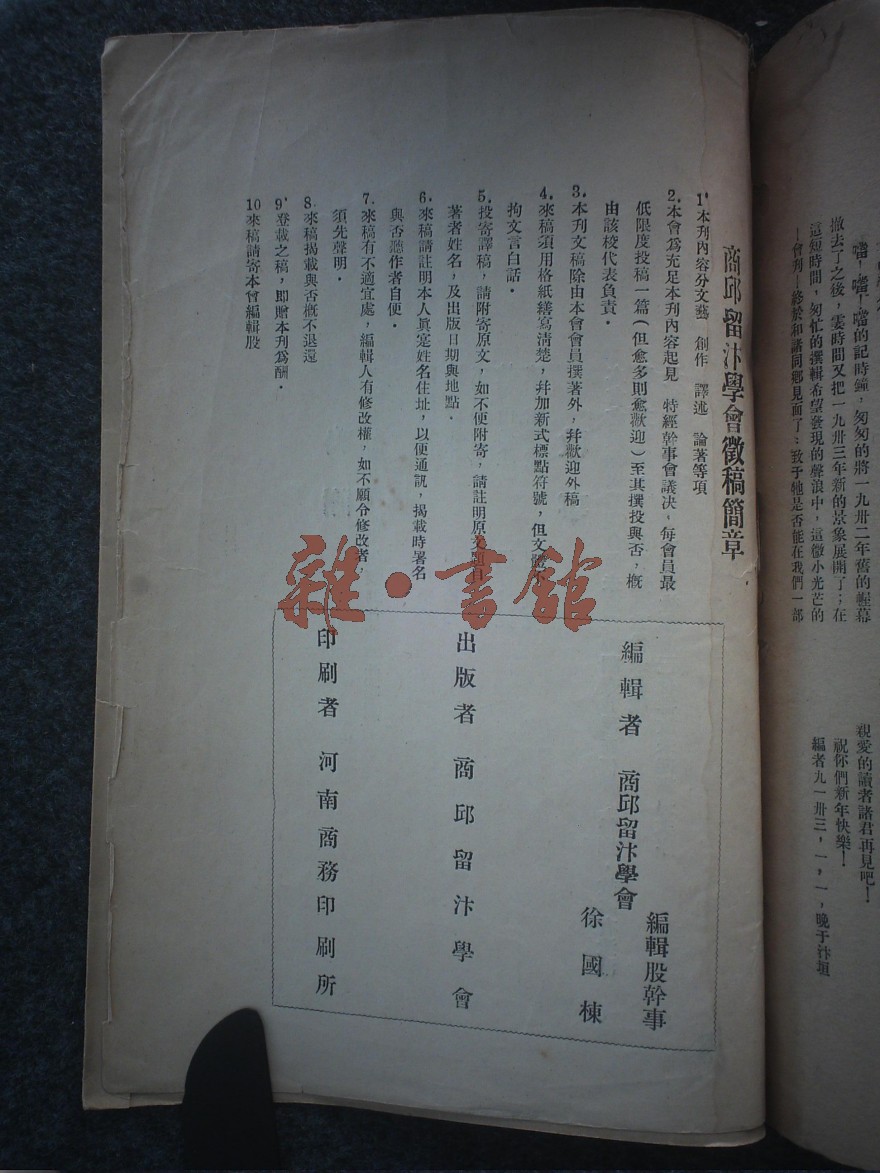 噹，噹！噹的記時鐘，匆匆的將一九卅二年舊的幄幕
撤去了之後，霎時間又把一九卅三年新的景象展開了；在
這短時間，匆忙的撰輯希望發現的聲浪中，這微小光芒的
—會刊—終於和諸同鄉見面了；致于牠是否能在我們一部
親愛的讀者諸君再見吧！
祝你們新年快樂！
編者九一卅三，一，一，晚于汴垣
商邱留汴學會徵稿簡章
1，本刊內容分文藝　創作　譯述　論著等項
2.本會爲充足本刊內容起見　特經幹事會議决，每會員最
低限度投稿一篇（但愈多則愈歡迎）至其撰投與否，概
由該校代表負責。
3.本刊文稿除由本會會員撰著外，幷歡迎外稿
4.來稿須用格紙繕寫清楚，幷加新式標點符號，但文體不
拘文言白話。
5.投寄譯稿，請附寄原文，如不便附寄，請註明原文題目
著者姓名，及出版日期與地點。
6.來稿請註明本人眞寔姓名住址，以便通訊，揭載時署名
與否聽作者自便。
7.來稿有不適宜處，編輯人有修改權，如不願令修改者，
須先聲明。
8.來稿揭載與否概不退還
9，登載之稿，即贈本刊爲酬。
10來稿請寄本會編輯股
編輯者　商邱留汴學會
編輯股幹事
徐國棟
出版者　商邱留汴學會
印刷者　河南商務印刷所
雜·書館